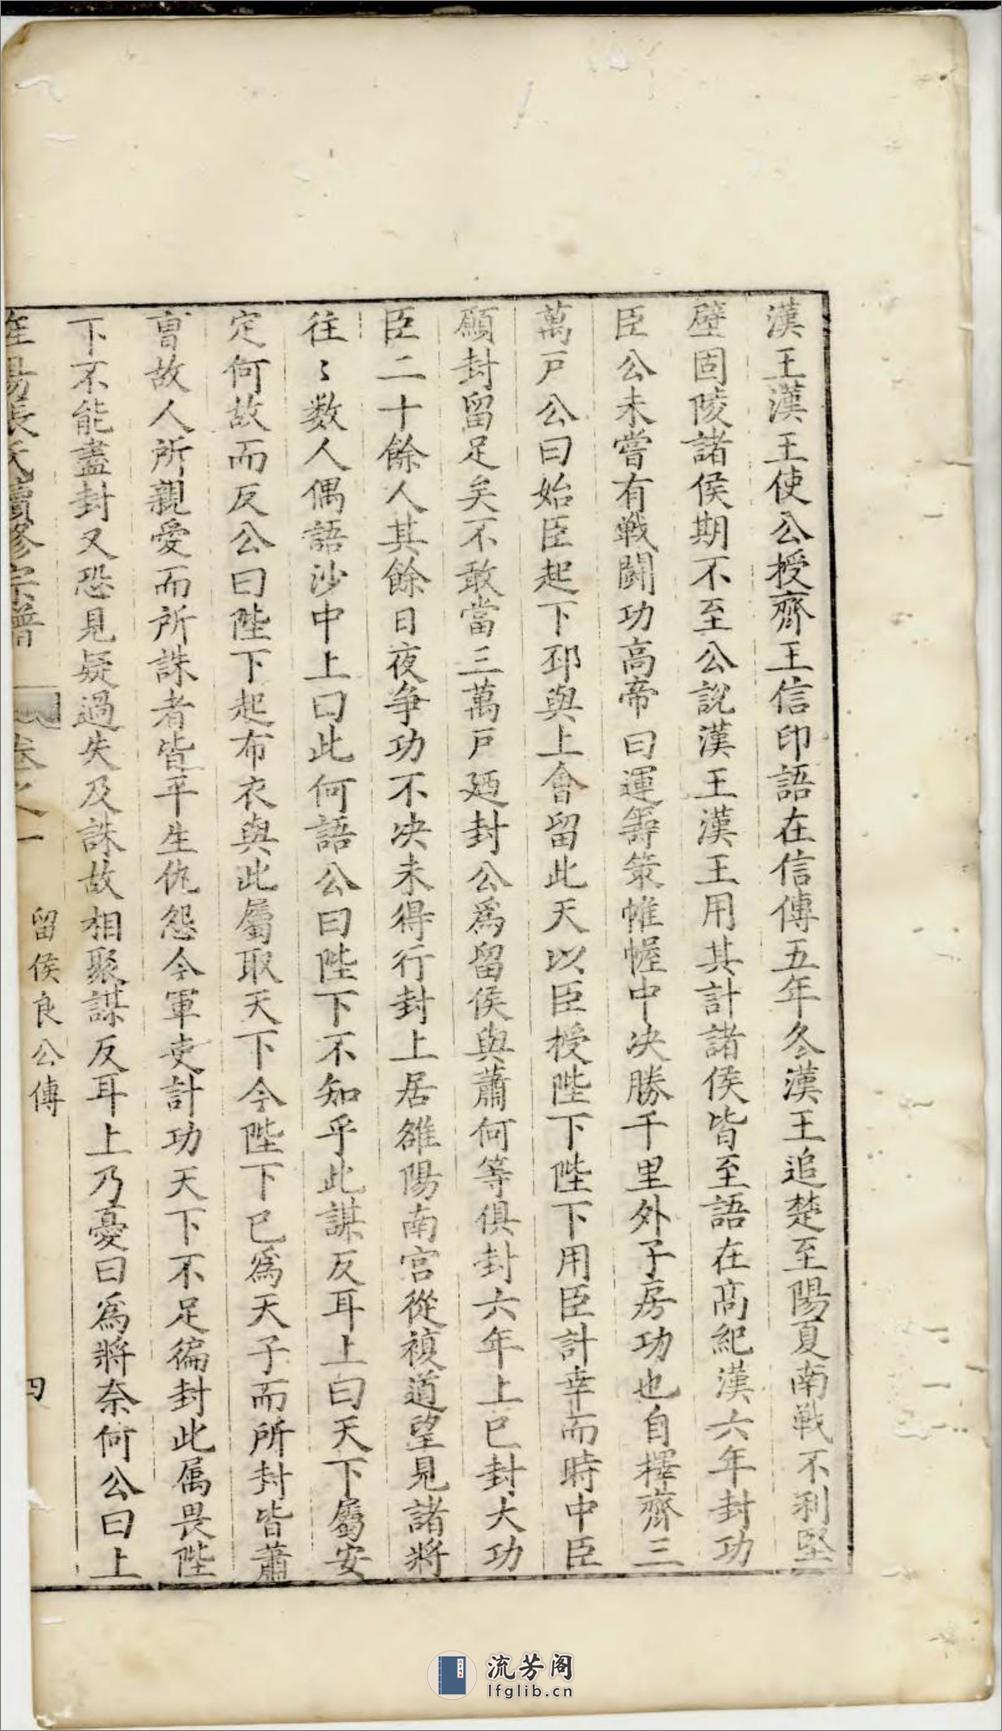 漢王漢王使公授齊王信印語在信傳五年冬漢王追楚至陽夏南戦不利堅
壁固陵諸侯期不至公說漢王漢王用其計諸侯皆至語在高紀漢六年封功
臣公未嘗有戦闘功高帝曰運籌策帷幄中决勝千里外子房功也自擇齊三
萬戸公曰始臣起下邳與上會留此天以臣授陛下陛下用臣計幸而時中臣
願封留足矣不敢當三萬戸廼封公爲留侯與蕭何等俱封六年上已封大功
臣二十餘人其餘日夜争功不决未得行封上居雒陽南宮從複道望見諸將
往〻数人偶語沙中上曰此何語公曰陛下不知乎此謀反耳上曰天下屬安
定何故而反公曰陛下起布衣與此屬取天下今陛下已爲天子而所封皆蕭
曺故人所親愛而所誅者皆平生仇怨今軍吏計功天下不足徧封此属畏陛
下不能盡封又恐見疑過失及誅故相聚謀反耳上乃憂曰爲將奈何公曰上
陽張氏續修宗譜
卷之一
留侯良公傳
四
流芳阁
lfglib.cn